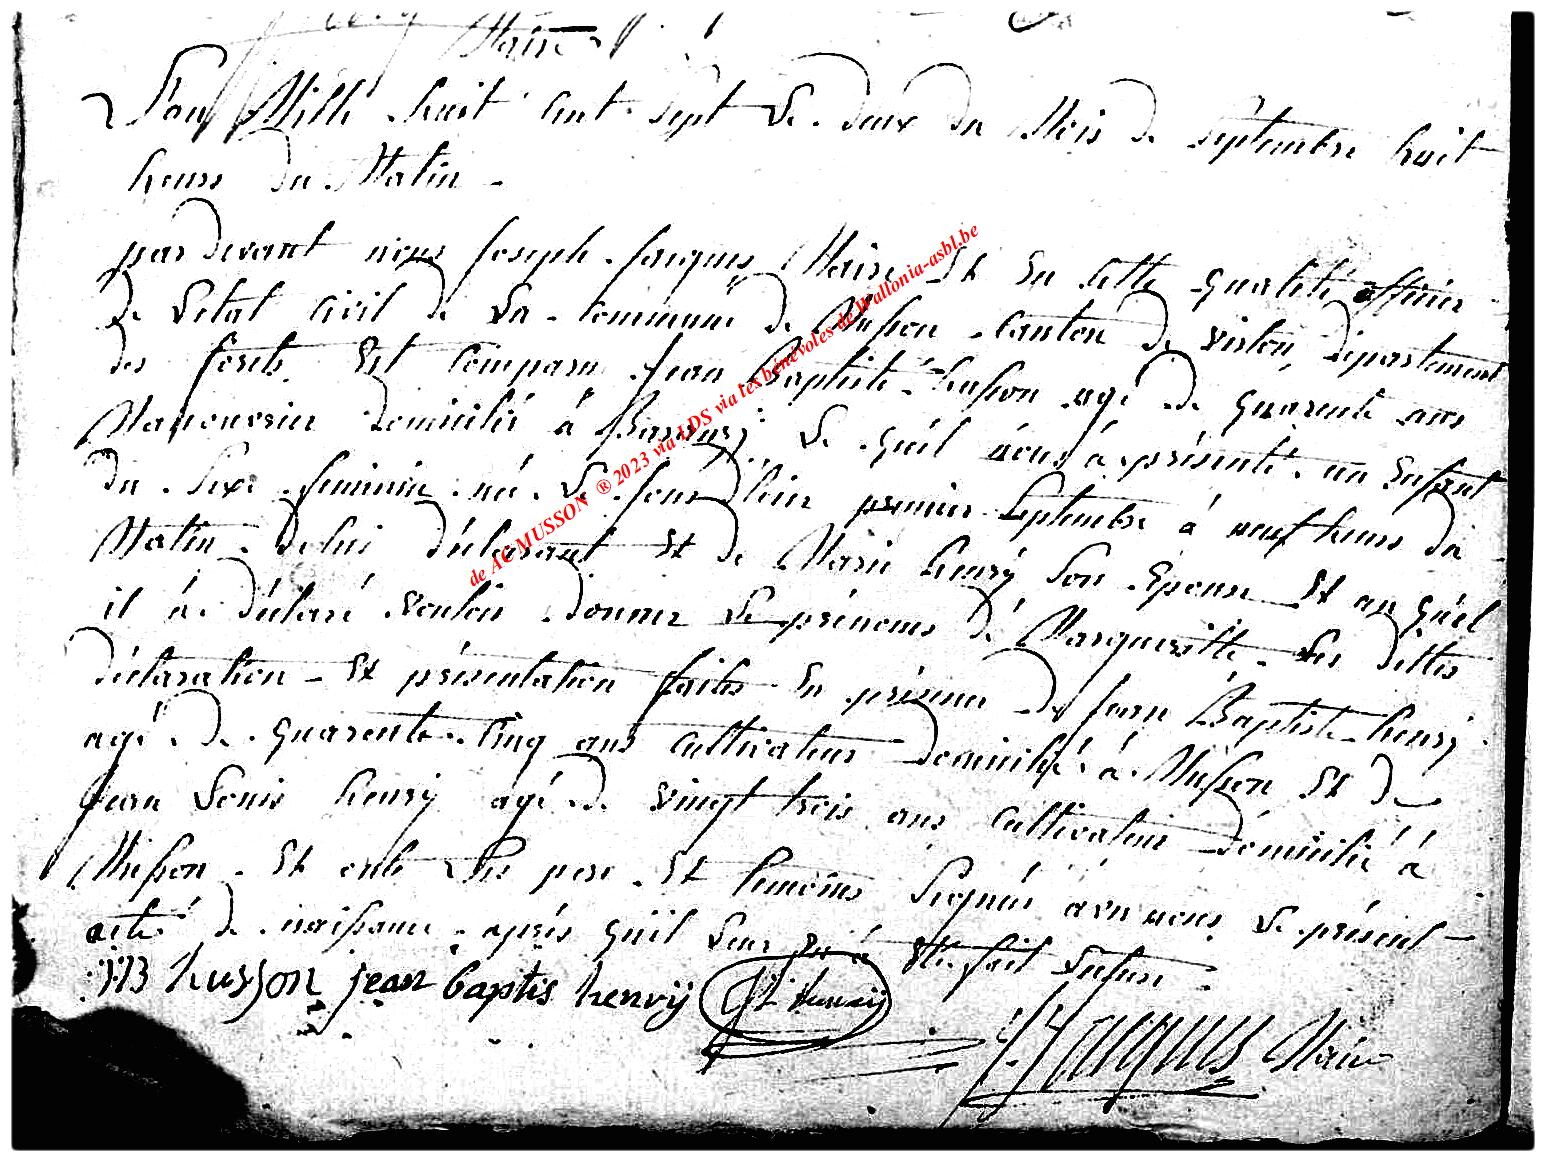 Maire
L'an Mille huit cent sept Le deux du Mois de Septembre huit
heurs du Matin -
pardevant nous Joseph Jacques Maire Et En cette qualité officier
de Letat Civil de La Commune de Musson Canton de virton, département
des forets Est Comparu Jean Baptiste husson agé de quarente ans
Manouvrier domicilié à Baranzy Le quel nous à présenté un Enfant
du Sexe feminin né Le Jour d'hier premier Septembre à neuf heurs du
Matin de lui déclarant Et de Marie henry son Epouse Et au quel
il à déclaré vouloir donner Le prénoms de Margueritte Les dittes
déclaration - Et présentation faites En présence de Jean Baptiste henry
agé de quarente cinq ans cultivateur domicilié à Musson Et de
Jean Louis henry agé de vingt trois ans cultivateur domicilié à
Musson Et ont Les pere Et temoins Signés avec nous Le présent -
acte de naissance après qu'il Leur En à Eté fait Lecture
JB husson jean baptis henrij JL henrij
JJacques Maire
de AC MUSSON ® 2023 via LDS via les bénévoles de Wallonia-asbl.be